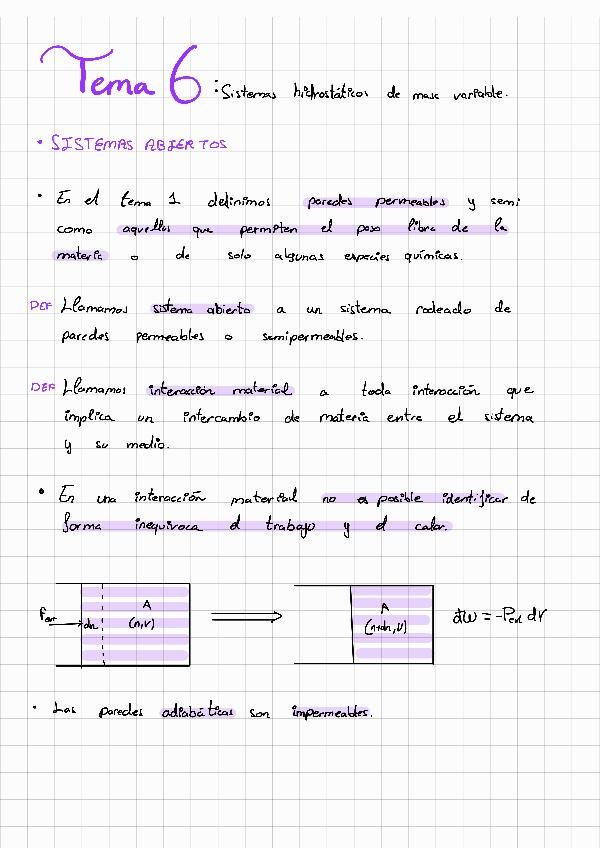 Tema 6: Sistemas hidrostáticos de masa variable.
• SISTEMAS ABIERTOS
• En el tema 1 definimos paredes permeables y semi
como aquellas que permiten el paso libre de la
materia o de solo algunas especies químicas.
DEF Llamamos sistema abierto a un sistema rodeado de
paredes permeables o semipermeables.
DEF Llamamos interacción material a toda interacción que
implica un intercambio de materia entre el sistema
y su medio.
• En una interacción material no es posible identificar de
forma inequívoca el trabajo y el calor.
Fext dn A (n,V)
A (n+dn,V)
đW = -Pext dV
• Las paredes adiabáticas son impermeables.